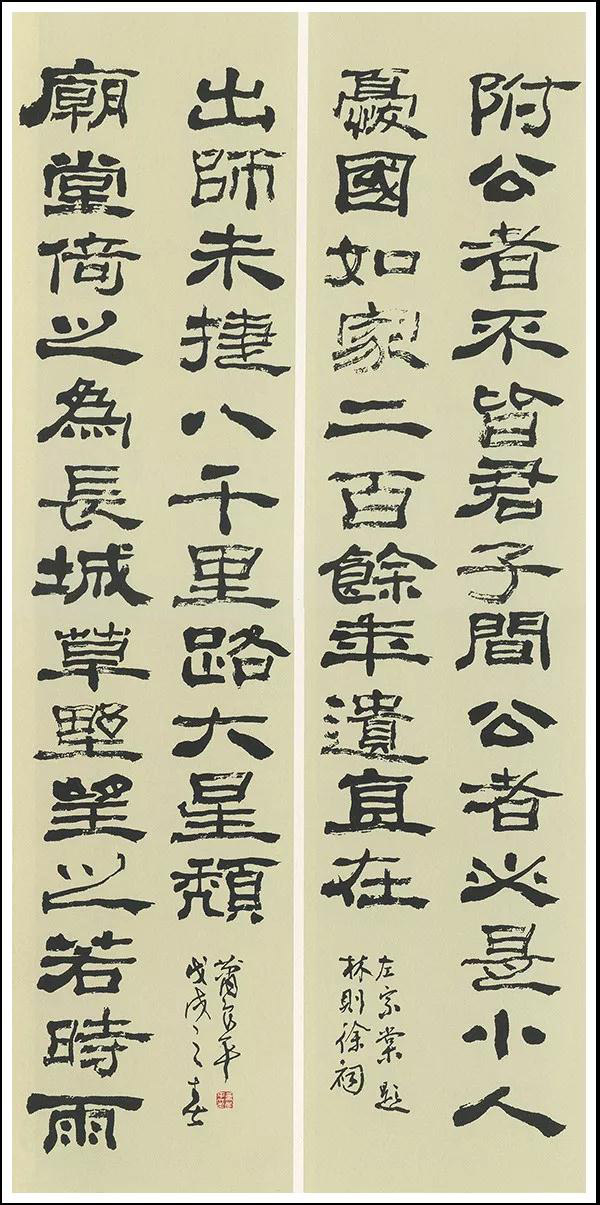 附公者不皆君子間公者必是小人
憂國如家二百餘年遺直在
左宗棠題
林則徐祠
廟堂倚之為長城草野望之若時雨
出師未捷八千里路大星頹
戊戌之春